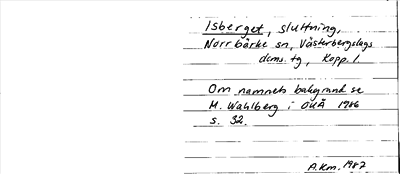 Isberget, sluttning,
Norrbärke sn, Västerbergslags
doms. tg, Kopp. l.
Om namnets bakgrund se
M. Wahlberg i OUÅ 1986
s. 32.
A.Km. 1987